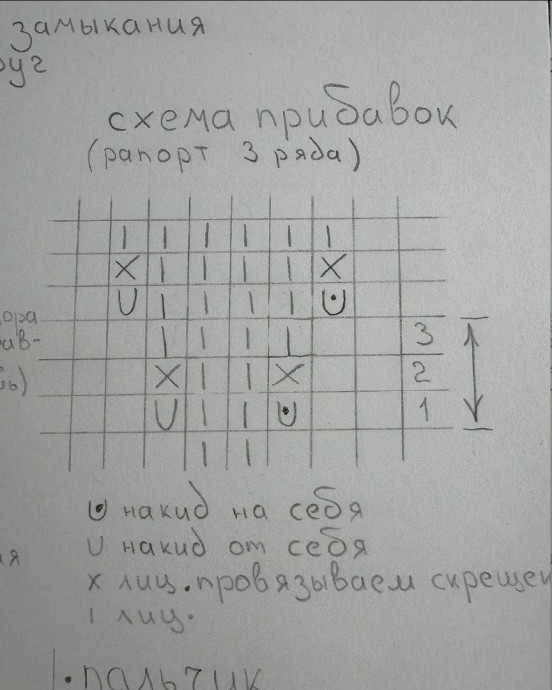 замыкания
схема прибавок
(рапорт 3 ряда)
| | | | | |
X | | | | X
U | | | | U
| | | | 3
X | | X 2
U | | U 1
| |
U накид на себя
U накид от себя
x лиц. провязываем скрещен
| лиц.
1. пальчик